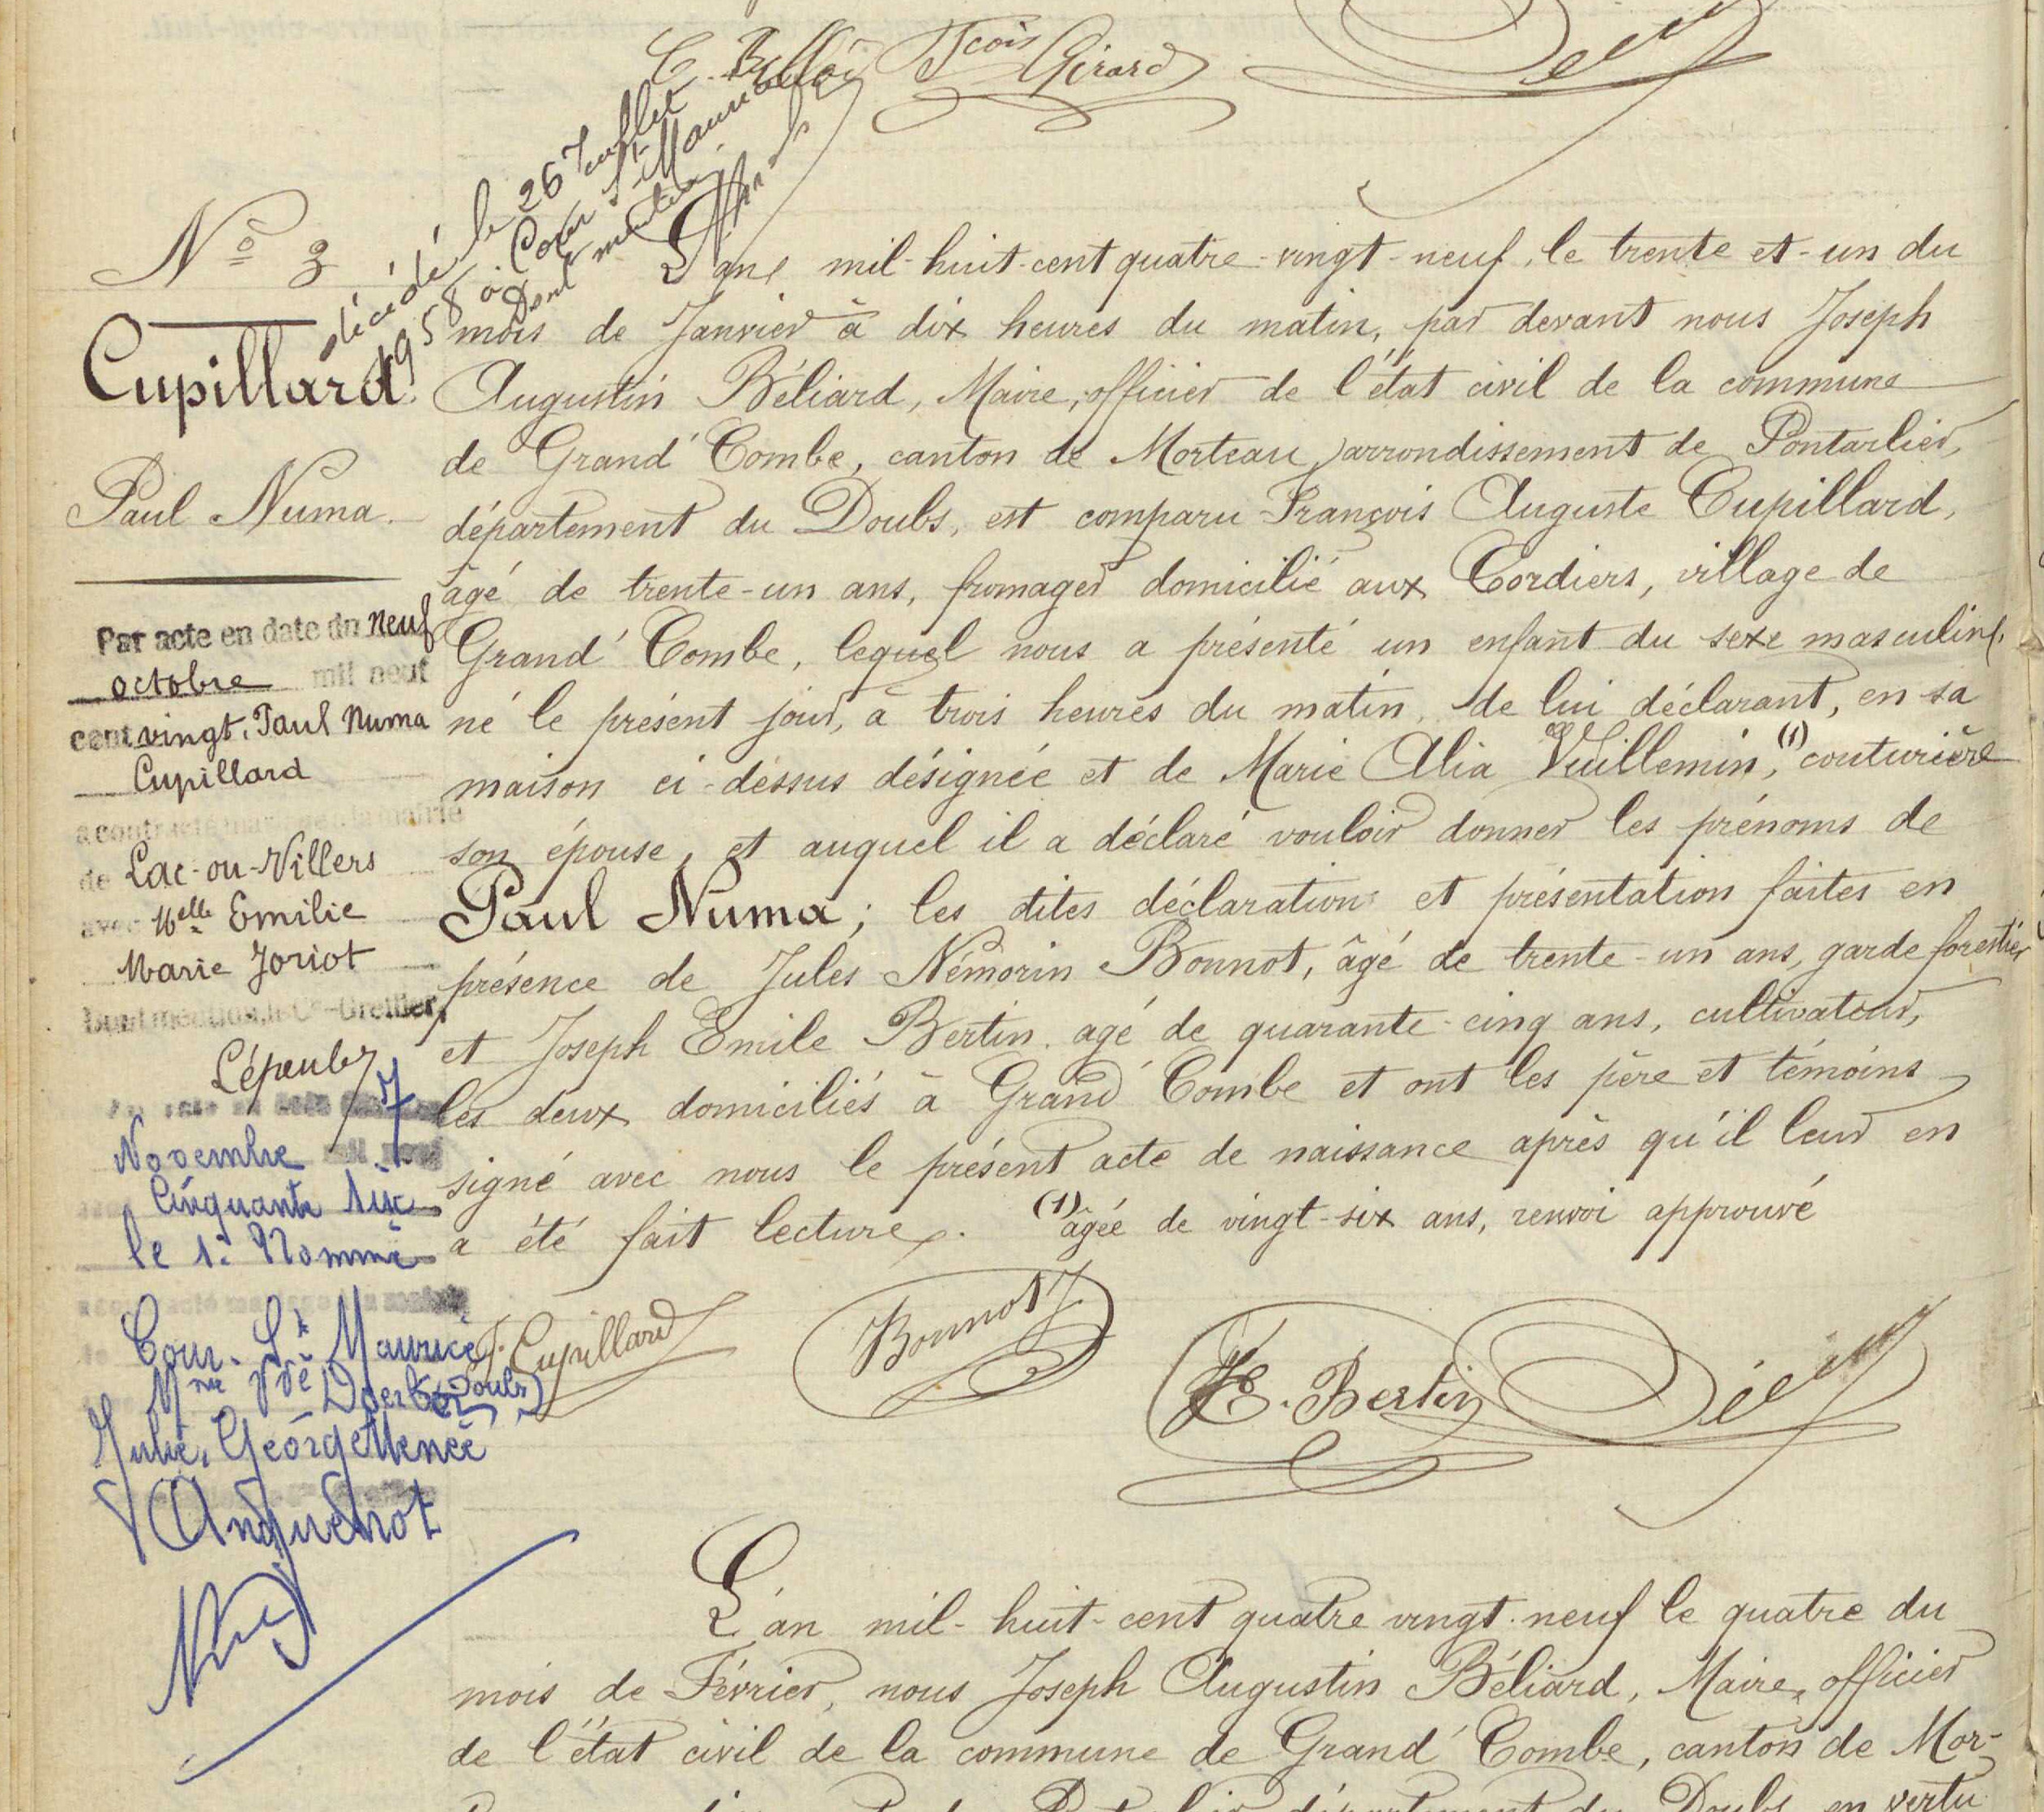 Fçois Girard
décédé le 26 Juillet
1958 à Cour St Maurice
Dont mention
No 3
Cupillard
Paul Numa.
Par acte en date du neuf
octobre mil neuf
cent vingt, Paul Numa
Cupillard
a contracté mariage à la mairie
de Lac-ou-Villers
avec Melle Emilie
Marie Joriot
Dont mention, le Cis-Greffier,
7
Novembre mil neuf
cinquante six
le 1er Nommé
Cour. St Maurice
(Doubs)
Mme Vve
Julie, Georgette Renée
Anguenot
L'an mil-huit-cent quatre-vingt-neuf, le trente et-un du
mois de Janvier à dix heures du matin, par devant nous Joseph
Augustin Béliard, Maire, officier de l'état civil de la commune
de Grand' Combe, canton de Morteau, arrondissement de Pontarlier,
département du Doubs, est comparu François Auguste Cupillard,
âgé de trente-un ans, fromager domicilié aux Cordiers, village de
Grand' Combe, lequel nous a présenté un enfant du sexe masculin,
né le présent jour, à trois heures du matin, de lui déclarant, en sa
maison ci-dessus désignée et de Marie Alia Vuillemin, (1) couturière
son épouse, et auquel il a déclaré vouloir donner les prénoms de
Paul Numa; les dites déclaration et présentation faites en
présence de Jules Némorin Bonnot, âgé de trente-un ans, garde forestier
et Joseph Emile Bertin agé de quarante-cinq ans, cultivateur,
les deux domiciliés à Grand' Combe et ont les père et témoins
signé avec nous le présent acte de naissance après qu'il leur en
a été fait lecture. (1) âgée de vingt-six ans, renvoi approuvé
F. Cupillard
Bonnot J
J E. Bertin
L'an mil-huit-cent quatre vingt-neuf le quatre du
mois de Février, nous Joseph Augustin Béliard, Maire, officier
de l'état civil de la commune de Grand' Combe, canton de Mor-
Doubs, en vertu